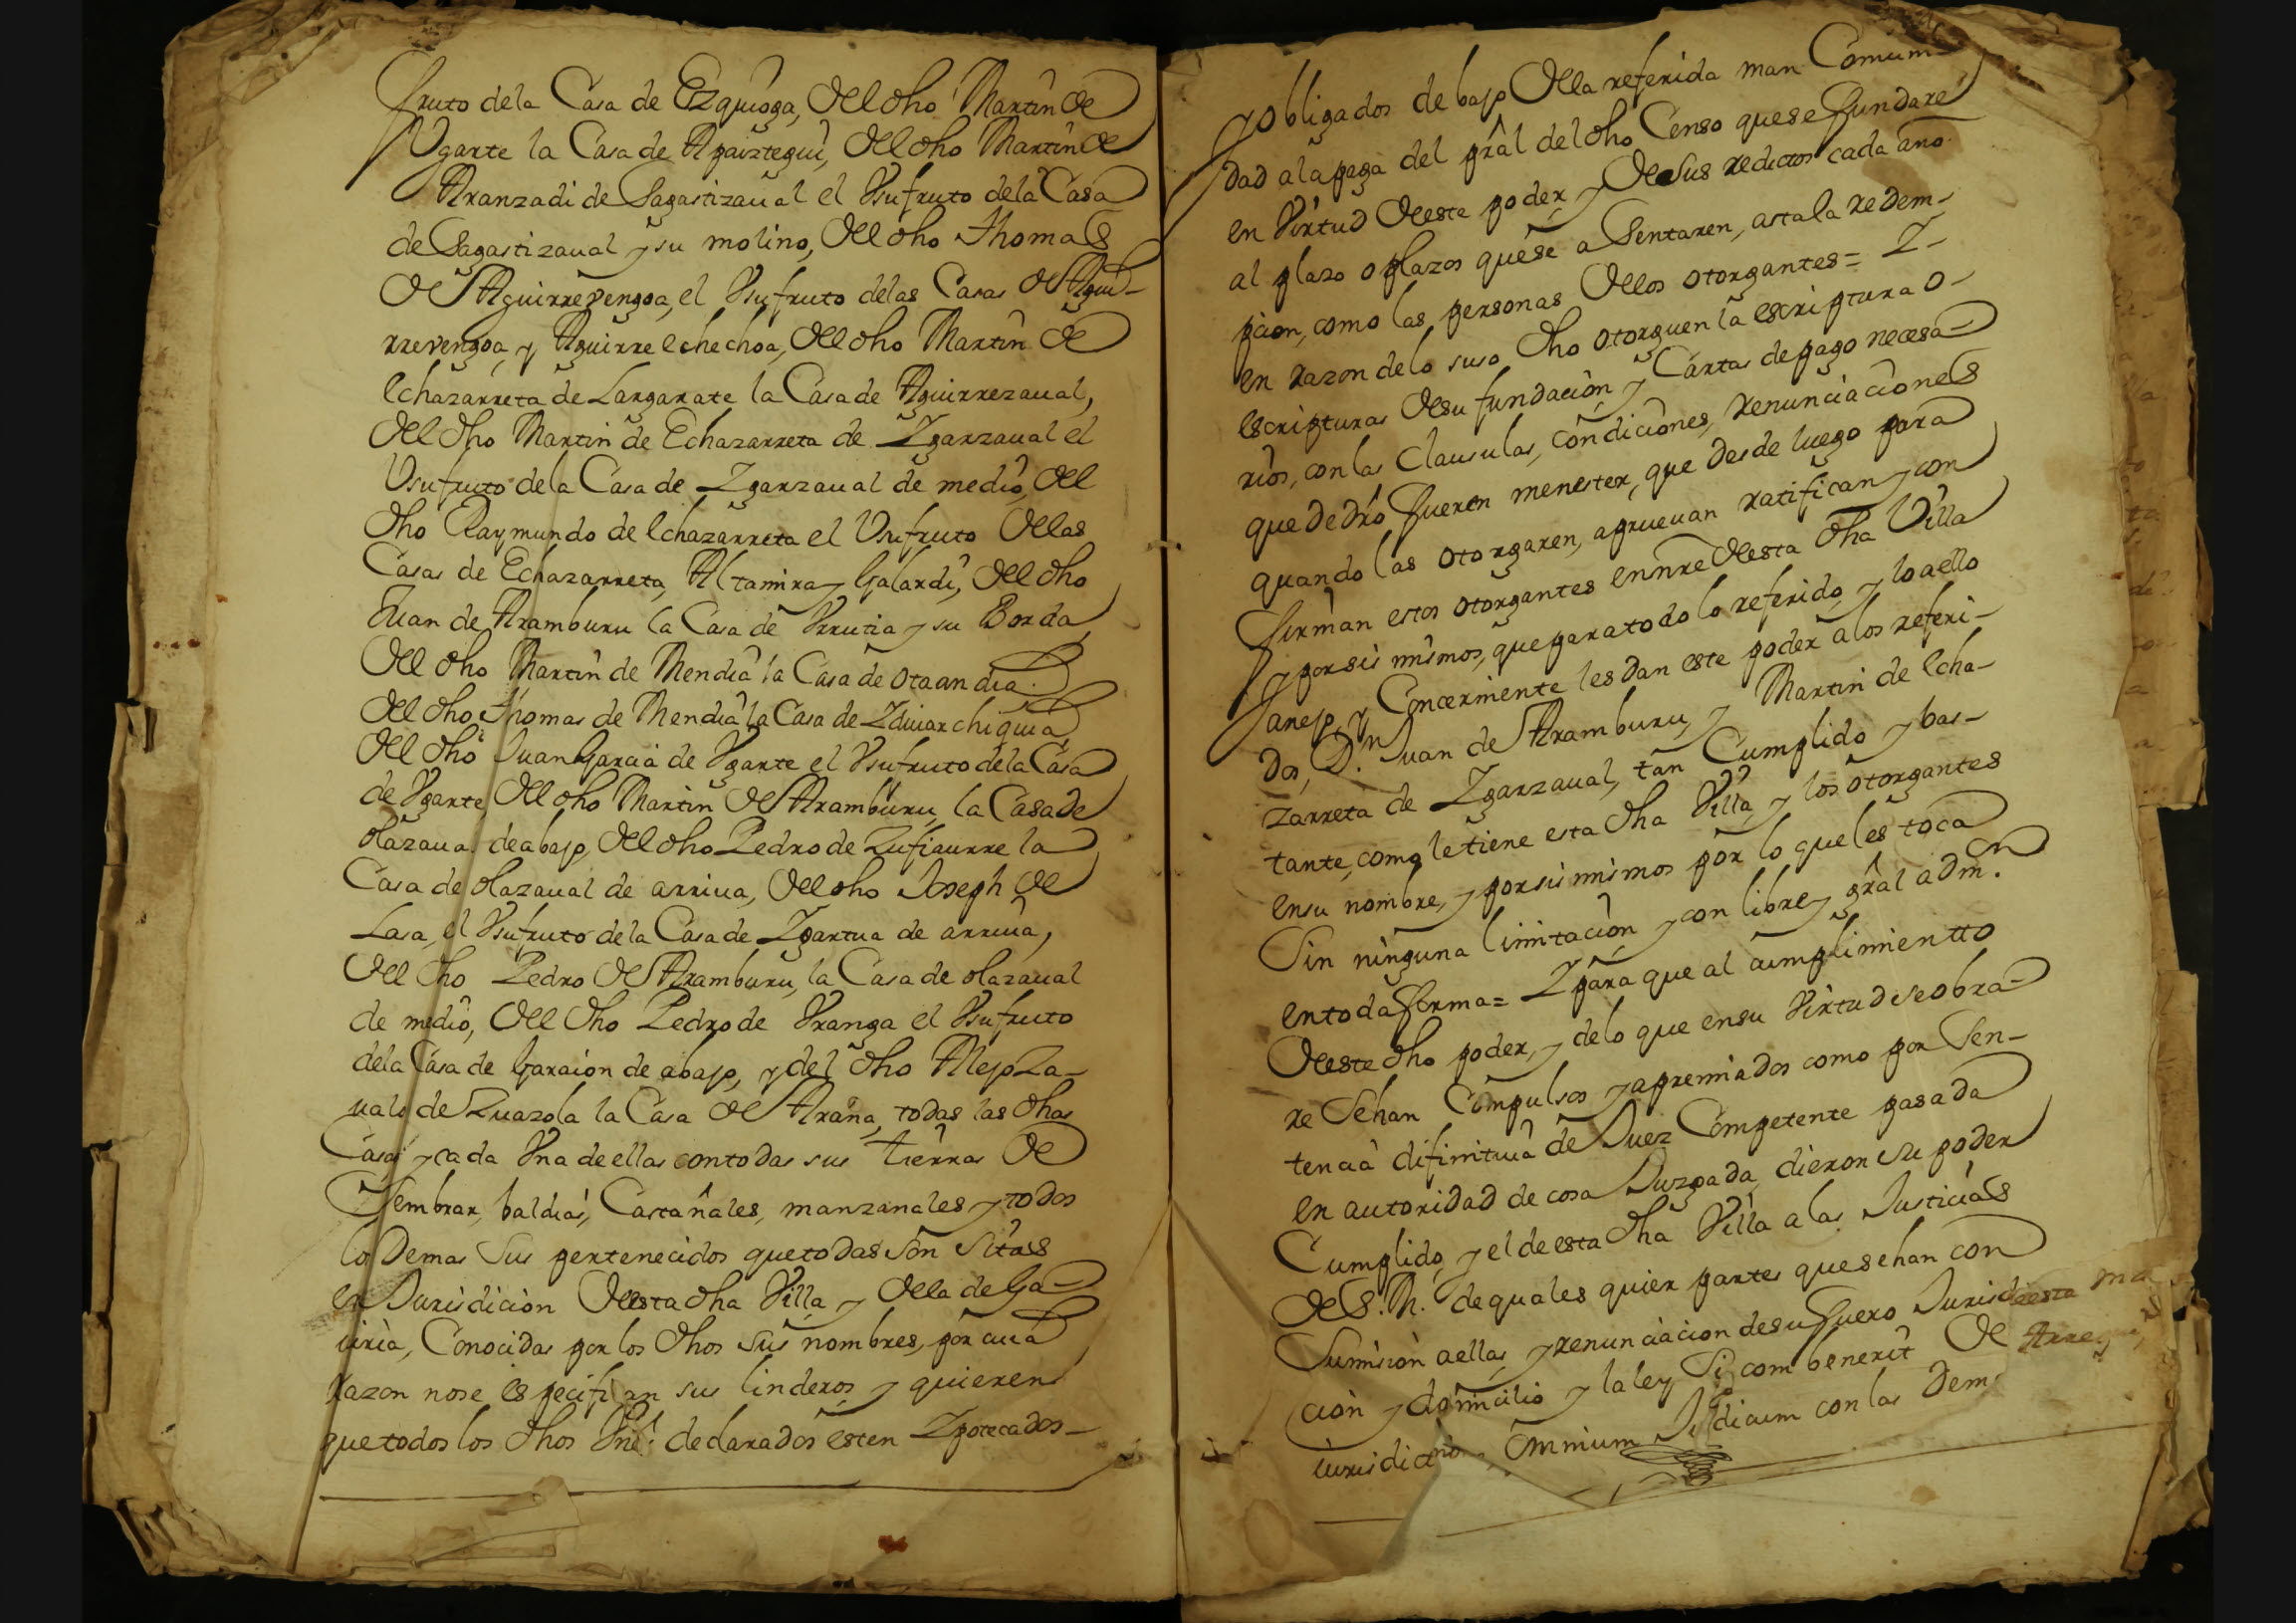 fruto dela Casa de Ezquioga, Del dho Martin de
Vgarte la Casa de Apaiztegui, Del dho Martin de
Aranzadi de Sagastizaual el Vsufruto dela Casa
de Sagastizaual y su molino, Del dho Thomas
de Aguirrevengoa, el Vsufruto delas Casas de Agui-
rrevengoa, y Aguirre echechoa, Del dho Martin de
echazarreta de Largarate la Casa de Aguirrezaual,
Del dho Martin de Echazarreta de Ygarzaual el
Vsufruto dela Casa de Ygarzaual de medio, Del
dho Raymundo de echazarreta el Vsufruto Delas
Casas de Echazarreta, Altamira y Galardi, Del dho
Juan de Aramburu la Casa de Vrrutia y su Borda,
Del dho Martin de Mendia la Casa de Otaandia
Del dho Thomas de Mendia la Casa de Ydiuiarchiquia,
Del dho Juan Garcia de Vgarte el Vsufruto dela Casa
de Vgarte, Del dho Martin de Aramburu, la Casa de
Olazaual de abajo, Del dho Pedro de Zufiaurre la
Casa de Olazaual de arriua, Del dho Joseph de
Lasa, el Vsufruto dela Casa de Ygartua de arriua,
Del dho Pedro de Aramburu, la Casa de Olazaual
de medio, Del dho Pedro de Vranga el Vsufruto
dela Casa de Garaion de abajo, y del dho Alejo Za-
uala de Zuazola la Casa de Arana, todas las dhas
Casas y cada Vna de ellas con todas sus tierras de
Sembrar, baldias, Castañales, manzanales y todos
los Demas Sus pertenecidos que todas Son Sitas
en Jurisdicion Desta dha Villa, y Dela de Ga-
uiria, Conocidas por los dhos Sus nombres, por cuia
Razon nose especifican sus linderos, y quieren
que todos los dhos declarados esten Ypotecados
y obligados de bajo Dela referida man Comuni-
dad ala paga del pral del dho Censo que se fundare
en Virtud Deste poder, y De Sus reditos cada año
al plazo o plazos que se a Sentaren, asta la redem-
pcion, como las personas Delos otorgantes = Y
en razon de lo suso dho otorguen la escriptura o
escripturas De su fundacion y Cartas de pago necesa-
rios, con las Clausulas, condiciones, renunciaciones
que de dro fueren menester, que des de luego para
quando las otorgaren, aprueuan ratifican y con
firman estos otorgantes en nre Desta dha Villa
y por sii mismos, que para todo lo referido, y lo a ello
anejo, y Concerniente les dan este poder a los referi-
dos, Dn Juan de Aramburu, y Martin de echa-
zarreta de Ygarzaual, tan Cumplido y bas-
tante, como le tiene esta dha Villa, y los otorgantes
en su nombre, y por sii mismos por lo que les toca
Sin ninguna limitacion y con libre y gral admon
en toda forma = Y para que al cumplimientto
Deste dho poder, y de lo que en su Virtud se obra-
re Sehan Compulsos y apremiados como por Sen-
tencia difinitiua de Juez Competente pasada
en autoridad de cosa Juzgada, dieron su poder
Cumplido, y el de esta dha Villa a las Justicias
De S. M. de quales quier partes que sehan con
Sumision a ellas, y renunciacion de su fuero Jurisdi
cion y domicilio y la ley Si combenerit De
iurisdicione omnium Judicum con las Dem